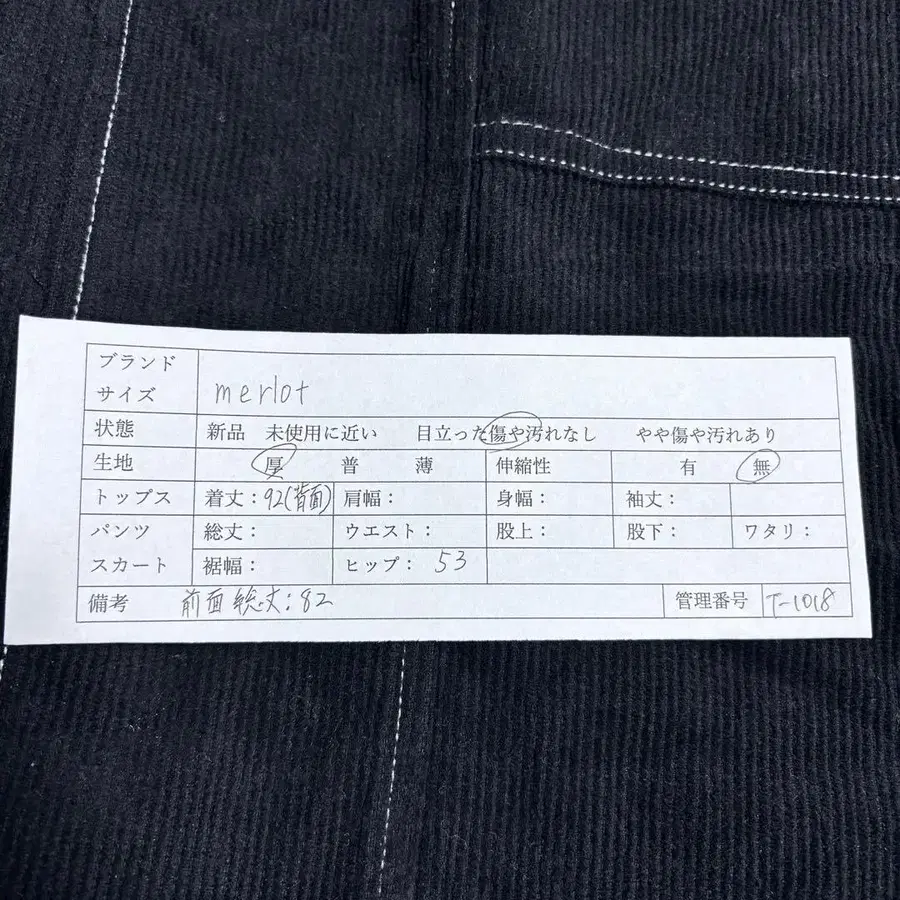 ブランド
サイズ merlot
状態 新品 未使用に近い 目立った傷や汚れなし やや傷や汚れあり
生地 厚 普 薄 伸縮性 有 無
トップス 着丈：92(背面) 肩幅： 身幅： 袖丈：
パンツ 総丈： ウエスト： 股上： 股下： ワタリ：
スカート 裾幅： ヒップ： 53
備考 前面総丈：82 管理番号 T-1018